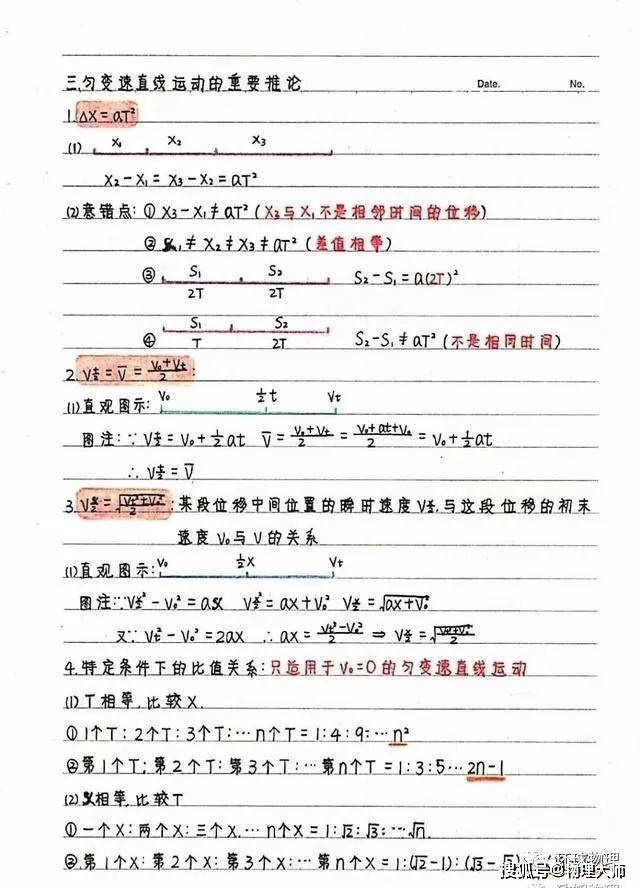 三.匀变速直线运动的重要推论 Date. No.
1. ΔX=aT²
(1) X₁ X₂ X₃
X₂-X₁=X₃-X₂=aT²
(2)意错点:① X₃-X₁≠aT²(X₂与X₁不是相邻时间的位移)
② X₁≠X₂≠X₃≠aT²(差值相等)
③ S₁ S₂ S₂-S₁=a(2T)²
2T 2T
④ S₁ S₂ S₂-S₁≠aT²(不是相同时间)
T 2T
2. V_{t/2}=V̄=(V₀+Vt)/2:
(1)直观图示: V₀ ½t Vt
图注:∵V_{t/2}=V₀+½at V̄=(V₀+Vt)/2=(V₀+at+V₀)/2=V₀+½at
∴V_{t/2}=V̄
3. V_{x/2}=√((Vt²+V₀²)/2):某段位移中间位置的瞬时速度V_{x/2},与这段位移的初末
速度V₀与V的关系
(1)直观图示: V₀ ½X Vt
图注:∵V_{x/2}²-V₀²=ax V_{x/2}²=ax+V₀² V_{x/2}=√(ax+V₀²)
又∵Vt²-V₀²=2ax ∴ax=(Vt²-V₀²)/2 ⇒ V_{x/2}=√((V₀²+Vt²)/2)
4.特定条件下的比值关系:只适用于V₀=0的匀变速直线运动
(1)T相等,比较X.
①1个T:2个T:3个T:…n个T=1:4:9:…n²
②第1个T:第2个T:第3个T:…第n个T=1:3:5…2n-1
(2)X相等,比较T
①一个X:两个X:三个X.…n个X=1:√2:√3:…√n.
②.第1个X:第2个X:第3个X:…第n个X=1:(√2-1):(√3-
搜狐号@物理大师